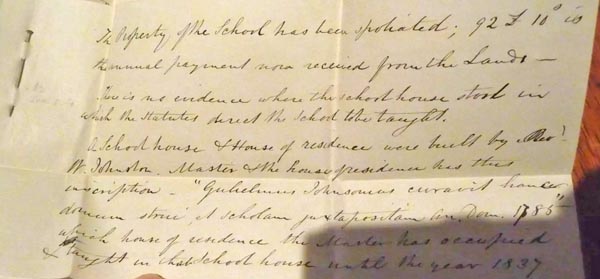 The Property of the School has been spoliated; 92 £ 10s is
the annual payment now received from the Lands —
There is no evidence where the school house stood in
which the Statutes direct the School to be taught.
A School house & House of residence were built by Revd
W. Johnston. Master & the house of residence has this
inscription - "Gulielmus Johnsonus curavit hance
domum strui, et Scholam juxtapositam An. Dom. 1785"
which house of residence the Master has occupied
& taught in that School house until the year 1837